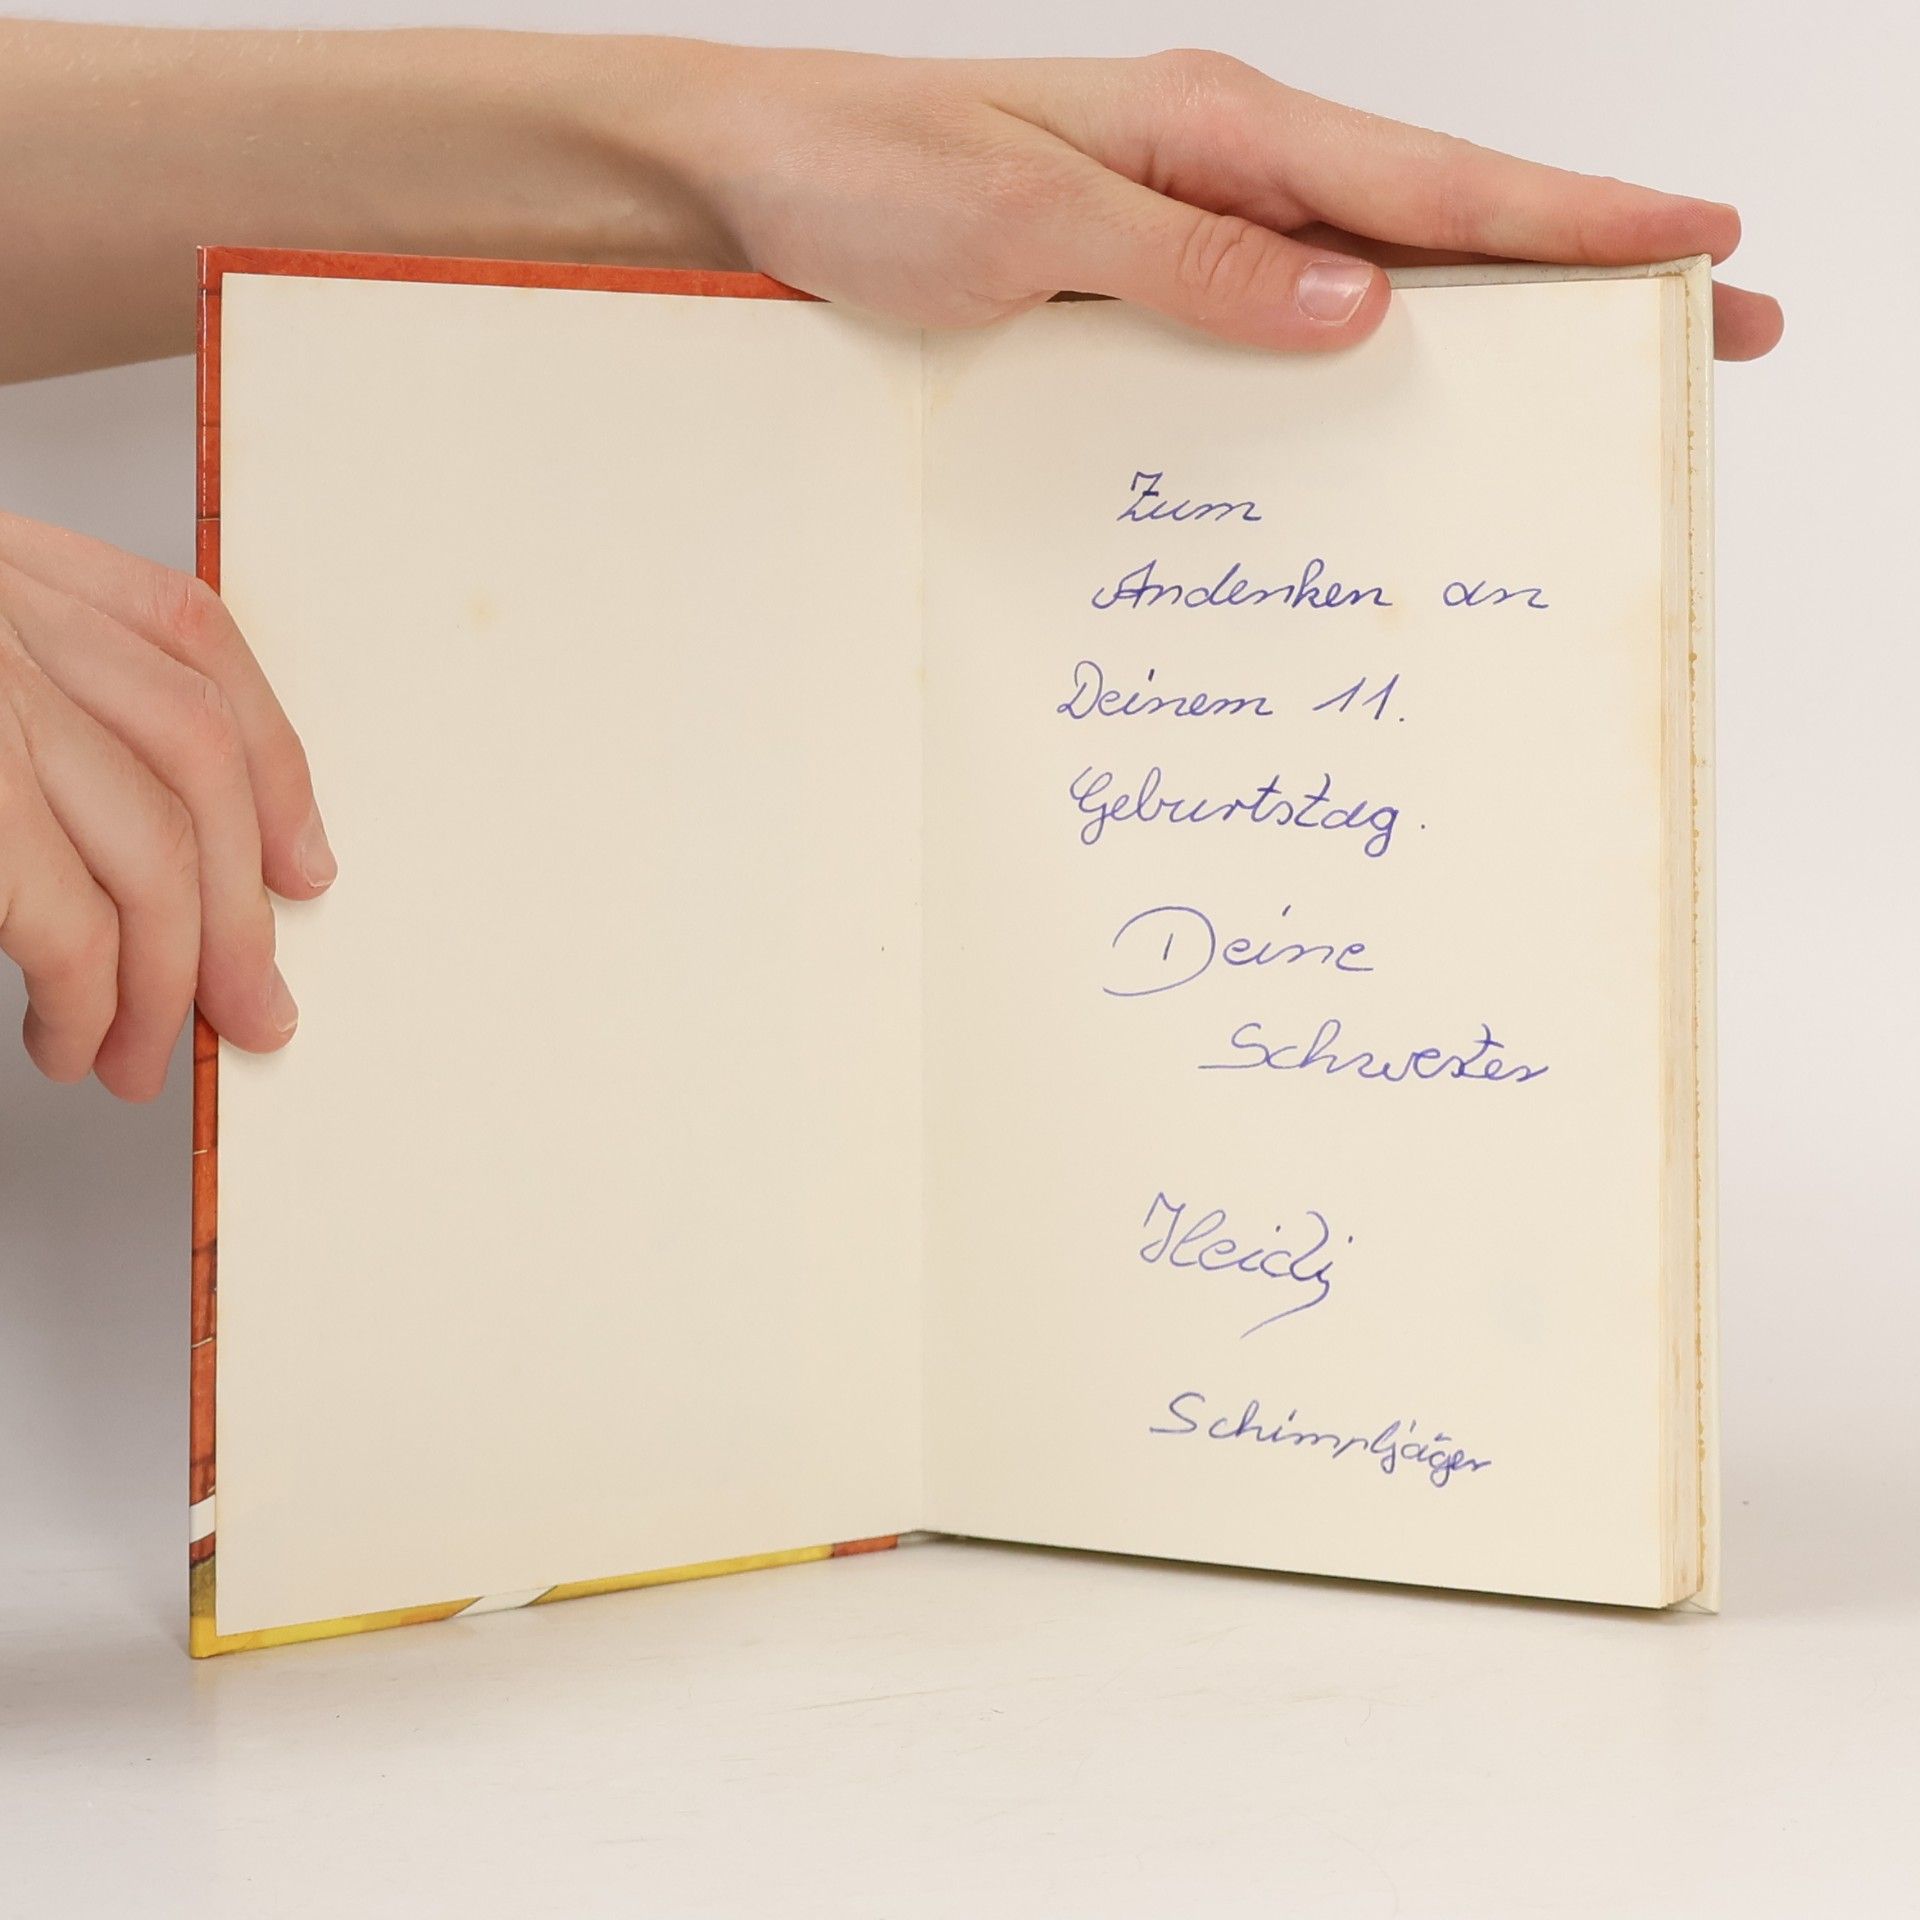 Zum
Andenken an
Deinem 11.
Geburtstag.
Deine
Schwester
Heidi
Schimpljäger